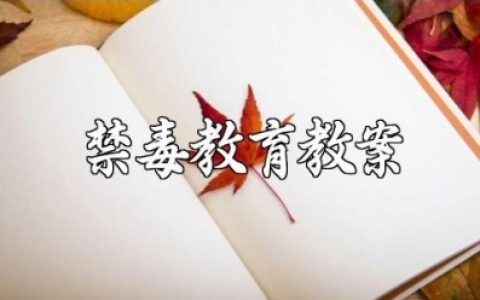 禁毒教育教案